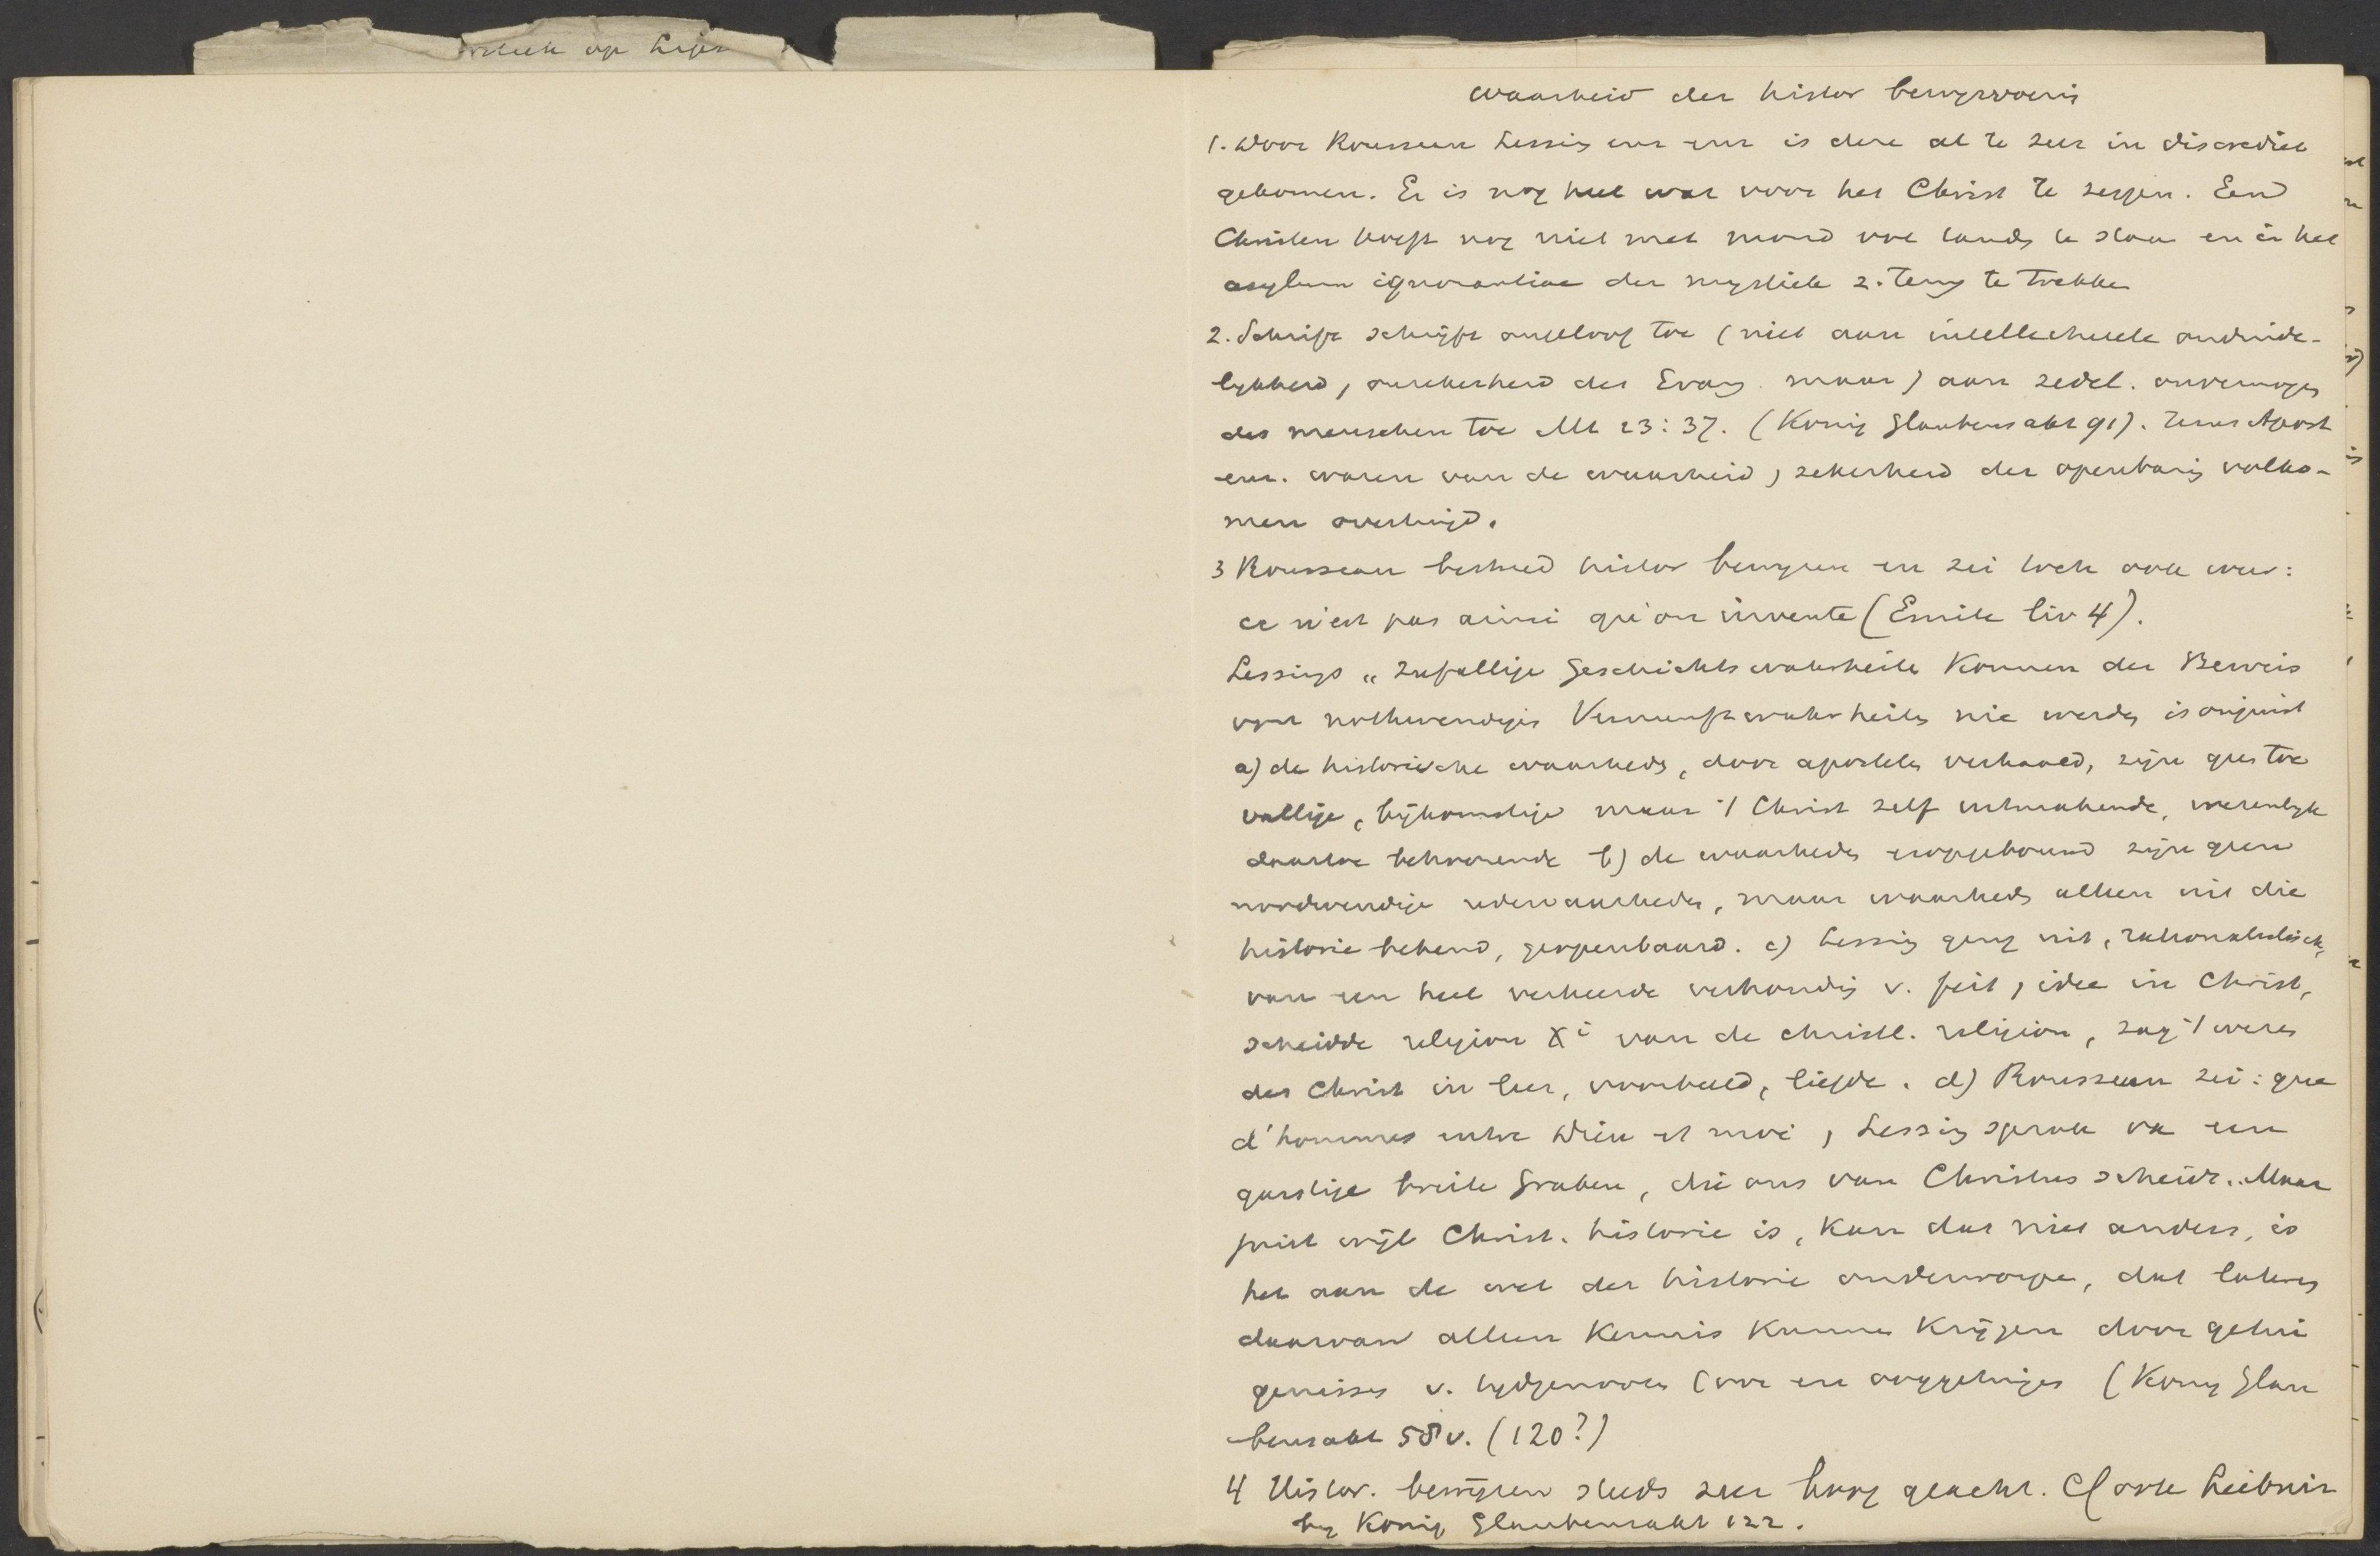 op
waarheid der histor bewijsvoering
1. Door Rousseau Lessing enz enz is deze al te zeer in discrediet
gekomen. Er is nog heel wat voor het Christ te zeggen. Een
Christen hoeft nog niet met mond vol tands te staan en in het
asylum ignorantiae der mystiek z. terug te trekken
2. Schrift schrijft ongeloof toe (niet aan intellectueele onduide-
lijkheid, onzekerheid des Evang. maar) aan zedel. onvermogen
des menschen toe Mt 23:37. (König Glaubensakt 91). Jezus Apost
enz. waren van de waarheid, zekerheid der openbaring volko-
men overtuigd.
3 Rousseau bestreed histor bewijzen en zei toch ook weer:
ce n'est pas ainsi qu'on invente (Emile liv 4).
Lessings "Zufallige Geschichtswahrheiten konnen der Beweis
von nothwendigen Vernunftwahrheiten nie werden is onjuist
a) de historische waarheden, door apostelen verhaald, zijn geen toe
vallige, bijkomstige maar 't Christ zelf uitmakende, wezenlijk
daartoe behoorende b) de waarheden erop gebouwd zijn geen
noodwendige redewaarheden, maar waarheden alleen uit die
historie bekend, geopenbaard. c) Lessing ging uit, rationalistisch,
van een heel verkeerde verhouding v. feit, idee in Christ,
scheidde religion Xi van de christl. religion, zag 't wezen
des Christ in leer, voorbeeld, liefde. d) Rousseau zei: que
d'hommes entre Dieu et moi, Lessing sprak van een
garstige breite Graben, die ons van Christus scheidt. Maar
juist wijl Christ. historie is, kan dat niet anders, is
het aan de wet der historie onderworpen, dat lateren
daarvan alleen kennis kunnen krijgen door getui
genissen v. tijdgenooten (oor en ooggetuigen (König Glau
bensakt 58v. (120?)
4 Histor. bewijzen steeds zeer hoog geacht. Cf ook Leibniz
bij König Glaubensakt 122.